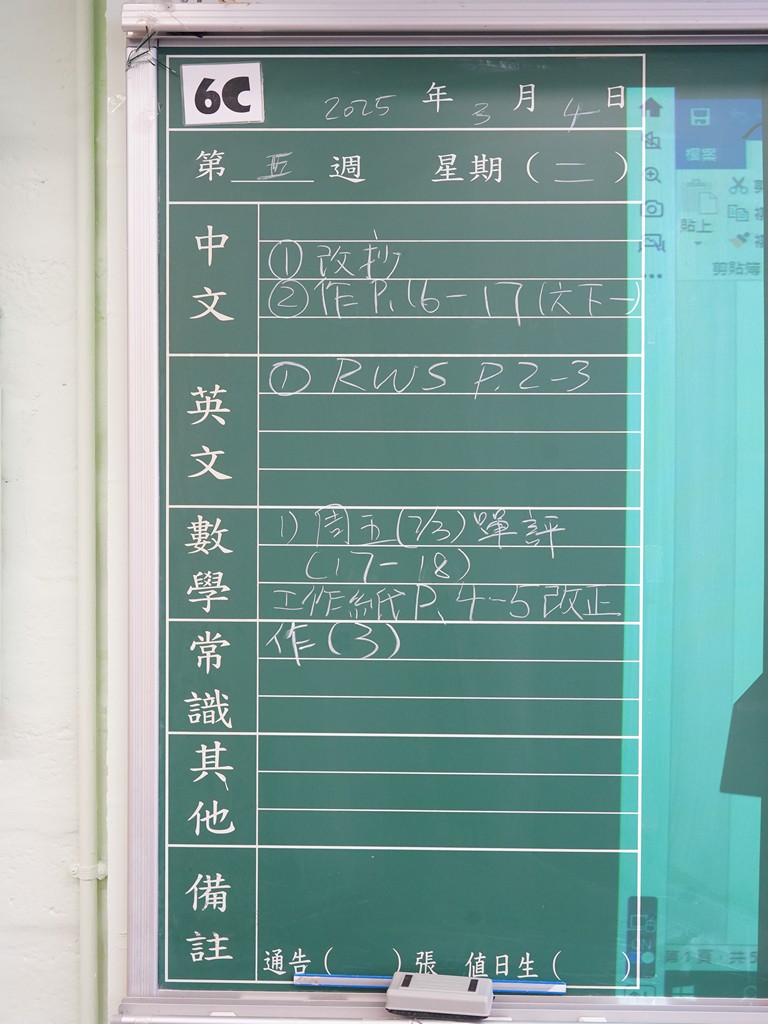 6C
2025 年 3 月 4 日
第 五 週 星期 ( 二 )
中文
① 改抄
② 作 P.16-17 (六下一)
英文
① RWS P.2-3
數學
1) 周五(7/3) 單評
(17-18)
工作紙 P.4-5 改正
常識
作(3)
其他
備註
通告( )張 值日生( )
檔案
貼上
剪貼簿